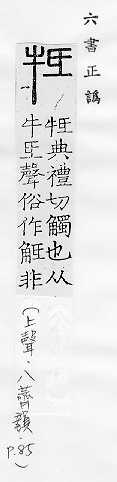 六書正譌
牴
牴典禮切觸也从
牛氐聲俗作觝非
(上聲·八薺韻·P.85)